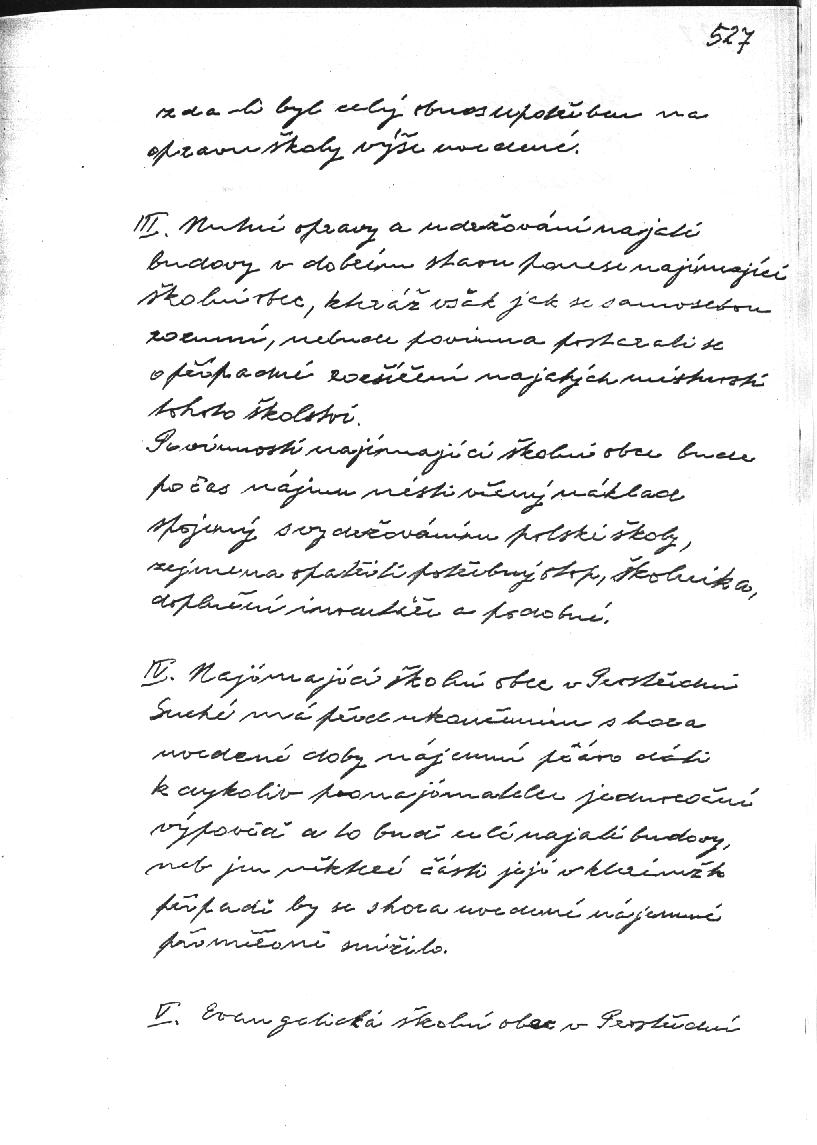 527
zda-li byl celý obnos upotřeben na
opravu školy výše uvedené.
III. Nutné opravy a udržování najaté
budovy v dobrém stavu ponese najímající
školní obec, kteráž však jak se samosebou
rozumí, nebude povinna postarati se
o případné rozšíření najatých místností
tohoto školství.
Povinností najímající školní obce bude
po čas nájmu nésti věcný náklad
spojený s vydržováním polské školy,
zejmena opatřiti potřebný otop, školníka,
doplnění inventáře a podobné.
IV. Najímající školní obec v Prostřední
Suché má před ukončením shora
uvedené doby nájemní právo dáti
kdykoliv pronajímatelce jednoroční
výpověď a to buď celé najaté budovy,
neb jen některé části její v kterémžto
případě by se shora uvedené nájemné
přiměřeně snížilo.
V. Evangelická školní obec v Prostřední